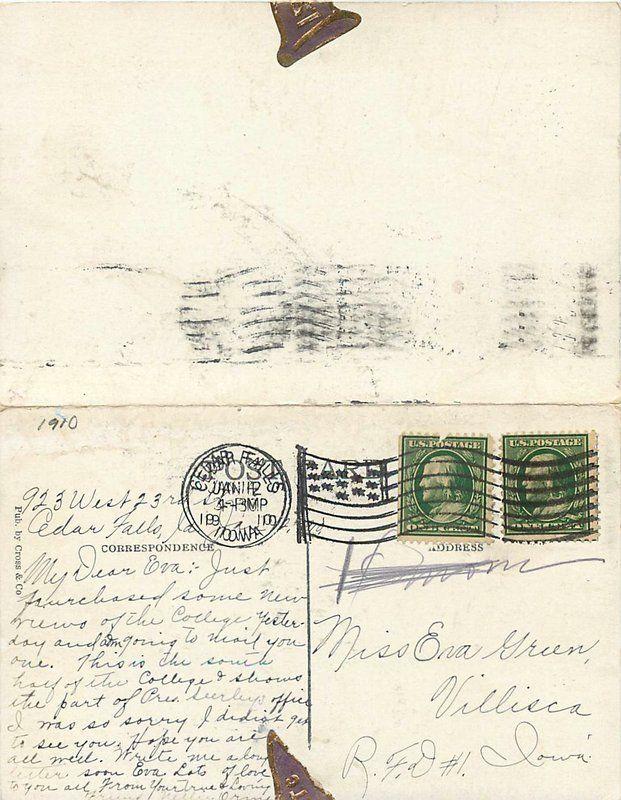 1910
CEDAR FALLS
JAN 12
1910
IOWA
U.S. POSTAGE
U.S. POSTAGE
923 West 23rd
Cedar Falls, Ia.
Pub. by Cross & Co
CORRESPONDENCE
ADDRESS
My Dear Eva:- Just
purchased some new
views of the College yester-
day and am going to mail you
one. This is the south
half of the College & shows
the part of Pres. Seerleys office
I was so sorry I didn't get
to see you. Hope you are
all well. Write me a long
letter soon Eva Lots of love
to you all. From Your True & loving
Miss Eva Green,
Villisca
Iowa.
R.F.D #1.